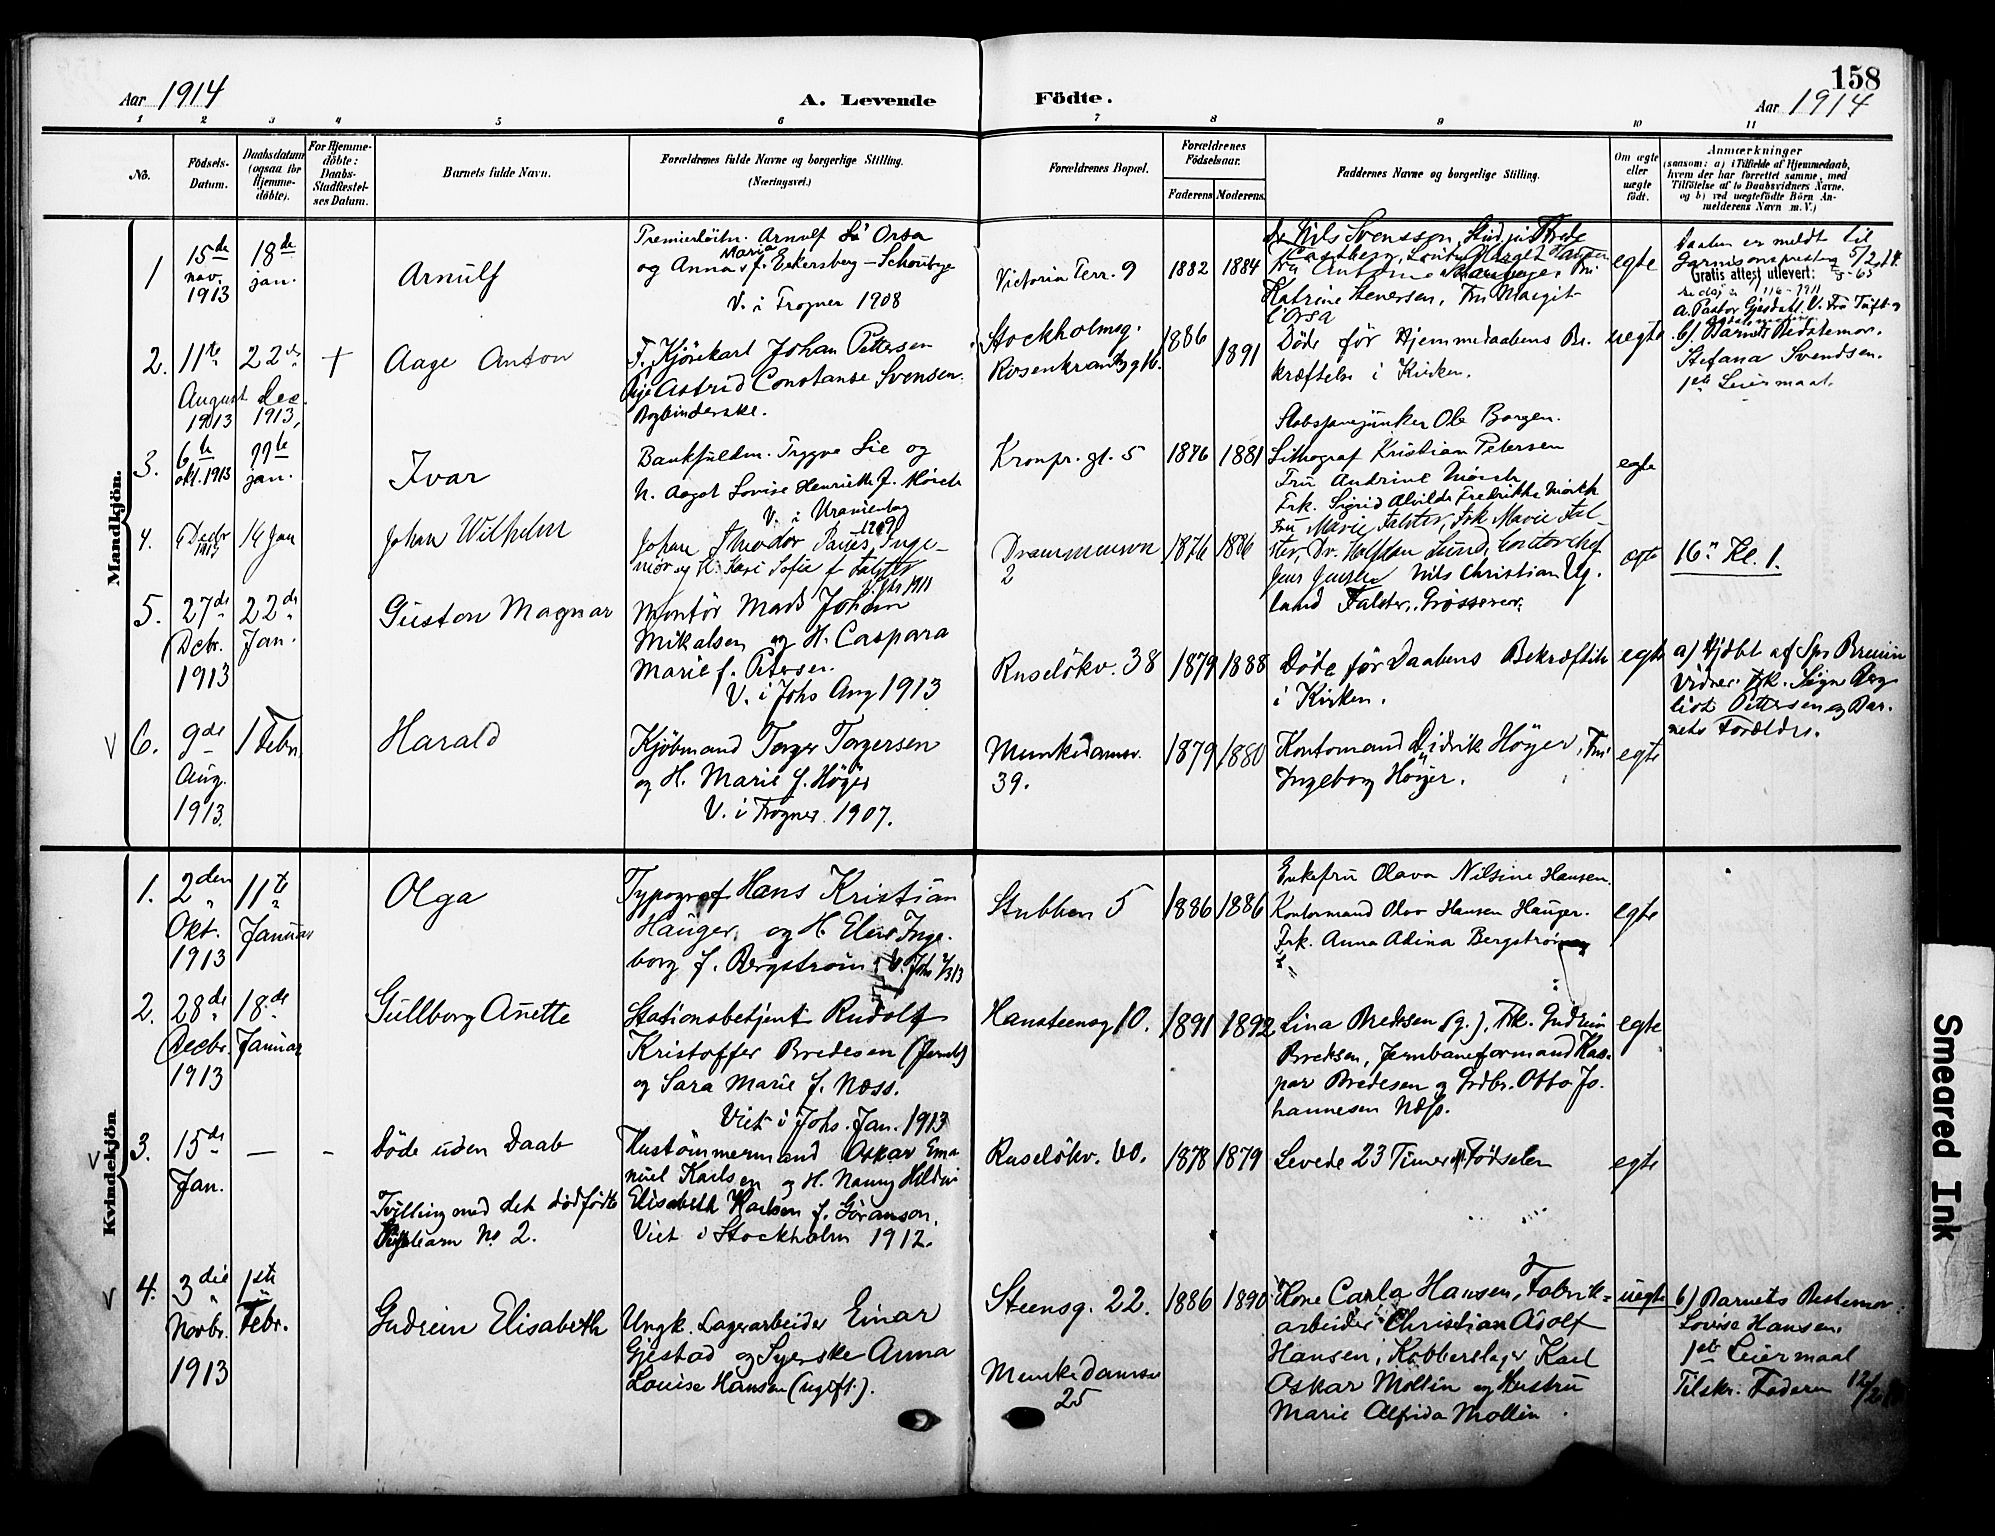 158
Aar 1914
A. Levende
Födte.
Aar 1914
1 2 3 4 5 6 7 8 9 10 11
No.
Födsels-
Datum.
Daabsdatum
(ogsaa for
Hjemme-
döbte).
For Hjemme-
döbte:
Daabs-
Stadfæstel-
ses Datum.
Barnets fulde Navn.
Forældrenes fulde Navne og borgerlige Stilling.
(Næringsvei.)
Forældrenes Bopæl.
Forældrenes
Födselsaar.
Faderens
Moderens
Faddernes Navne og borgerlige Stilling.
Om ægte
eller
uægte
födt.
Anmærkninger
(saasom: a) i Tilfælde af Hjemmedaab,
hvem der har forrettet samme, med
Tilföielse af to Daabsvidners Navne,
og b) ved uægtefödte Börn An-
melderens Navn m.V.)
Mandkjön.
1
15de
nov.
1913
18de
jan.
Arnulf
Premierlöitn. Arnulf Orsa
Maria
og Anna f. Eckersberg-Schoubye
V. i Frogner 1908
Victoria Terr. 9
1882
1884
Nils Svenssen, Stud.
Katrine Stenersen, Fru Margit
Orsa
egte
Daaben er meldt til
Garnisonspresten 5/2 14.
Gratis attest utlevert:
2.
11te
August
1913
22de
Dec.
1913,
+
Aage Anton
F. Kjörekarl Johan Pettersen
Pige Astrid Constanse Svensen
Bogbinderske.
Stockholmsg.
Rosenkrantzg 16.
1886
1891
Döde för Hjemmedaabens Be-
kræftelse i Kirken.
uegte
b) Barnets Bedstemor.
Stefana Svendsen.
1ste Leiermaal.
3.
6te
okt. 1913
11te
jan.
Ivar
Bankfuldm. Trygve Lie og
H. Aagot Lovise Henriette f. Mörch
V. i Uranienborg
1909
Kronpr. gt. 5
1876
1881
Stabsfanejunker Ole Borgen.
Lithograf Kristian Petersen
Fru Andrine Mörch
Frk. Sigrid Alvilde Fredrikke Mörch
egte
4.
Decbr
1913
14 Jan
Johan Wilhelm
Johan Theodor Inge-
niör og H. Kari Sofie f Falster
1911
Drammensvn
2
1876
1886
Fru Marie Falster, Frk Marie Fal-
ster, Dr. Halfdan Lund, Contorchef
Jens Jensen Nils Christian Ug-
land Falster, Grosserer.
egte
16" Kl. 1.
5.
27de
Dcbr.
1913
22de
Jan.
Guston Magnar
Montör Mads Johan
Mikalsen og H. Caspara
Marie f. Petersen.
V. i Johs Aug 1913
Ruselökv. 38
1879
1888
Döde för Daabens Bekræftelse
i Kirken.
egte
a) Hjdbt af Spr Bruun
Vidner Frk. Signe Berg-
liot Pettersen og Bar-
nets Forældre.
6.
9de
Aug.
1913.
1 Febr.
Harald
Kjöbmand Torger Torgersen
og H. Marie f. Höyer
V. i Frogner 1907.
Munkedamsv.
39.
1879
1880
Kontormand Didrik Höyer, Fru
Ingeborg Höyer.
egte
Kvindekjön
1.
2den
Okt.
1913
11te
Januar
Olga
Typograf Hans Kristian
Hauger og H. Elise Inge-
borg f. Bergström V. Johs 3/13
Stubben 5
1886
1886
Enkefru Olava Nilsine Hansen.
Kontormand Olav Hansen Hauger.
Frk. Anna Adina Bergström
egte
2.
28de
Decbr.
1913
18de
Januar
Gullborg Anette
Stationsbetjent Rudolf
Kristoffer Bredesen (Jernb)
og Sara Marie f. Næss.
Viet i Johs. Jan. 1913
Hansteensg 10.
1891
1892
Lina Bredesen (g.), Frk. Gudrun
Bredesen, Jernbaneformand Kas-
par Bredesen og Grdbr. Otto Jo-
hannesen Næss.
egte
3.
15de
Jan.
—
-
Döde uden Daab
Tvilling med det dödfödte
Pigebarn No 2.
Hustömmermand Oskar Ema-
nuel Karlsen og H. Nanny Hildur
Elisabeth Karlsen f. Göranson.
Viet i Stockholm 1912.
Ruselökv. 60.
1878
1879
Levede 23 Timer eft Födselen
egte
4.
3die
Novbr.
1913
1ste
Febr.
Gudrun Elisabeth
Ungk. Lagerarbeider Einar
Gjestad og Syerske Anna
Louise Hansen (ugift).
Steensg. 22.
Munkedamsv
25
1886
1890
Kone Carla Hansen, Fabrik-
arbeider Christian Adolf
Hansen, Kobberslager Karl
Oskar Mollin og Hustru
Marie Alfrida Mollin.
uegte
b) Barnets Bestemor
Lovise Hansen.
1ste Leiermaal
Tilskr. Faderen 12/2
Smeared Ink